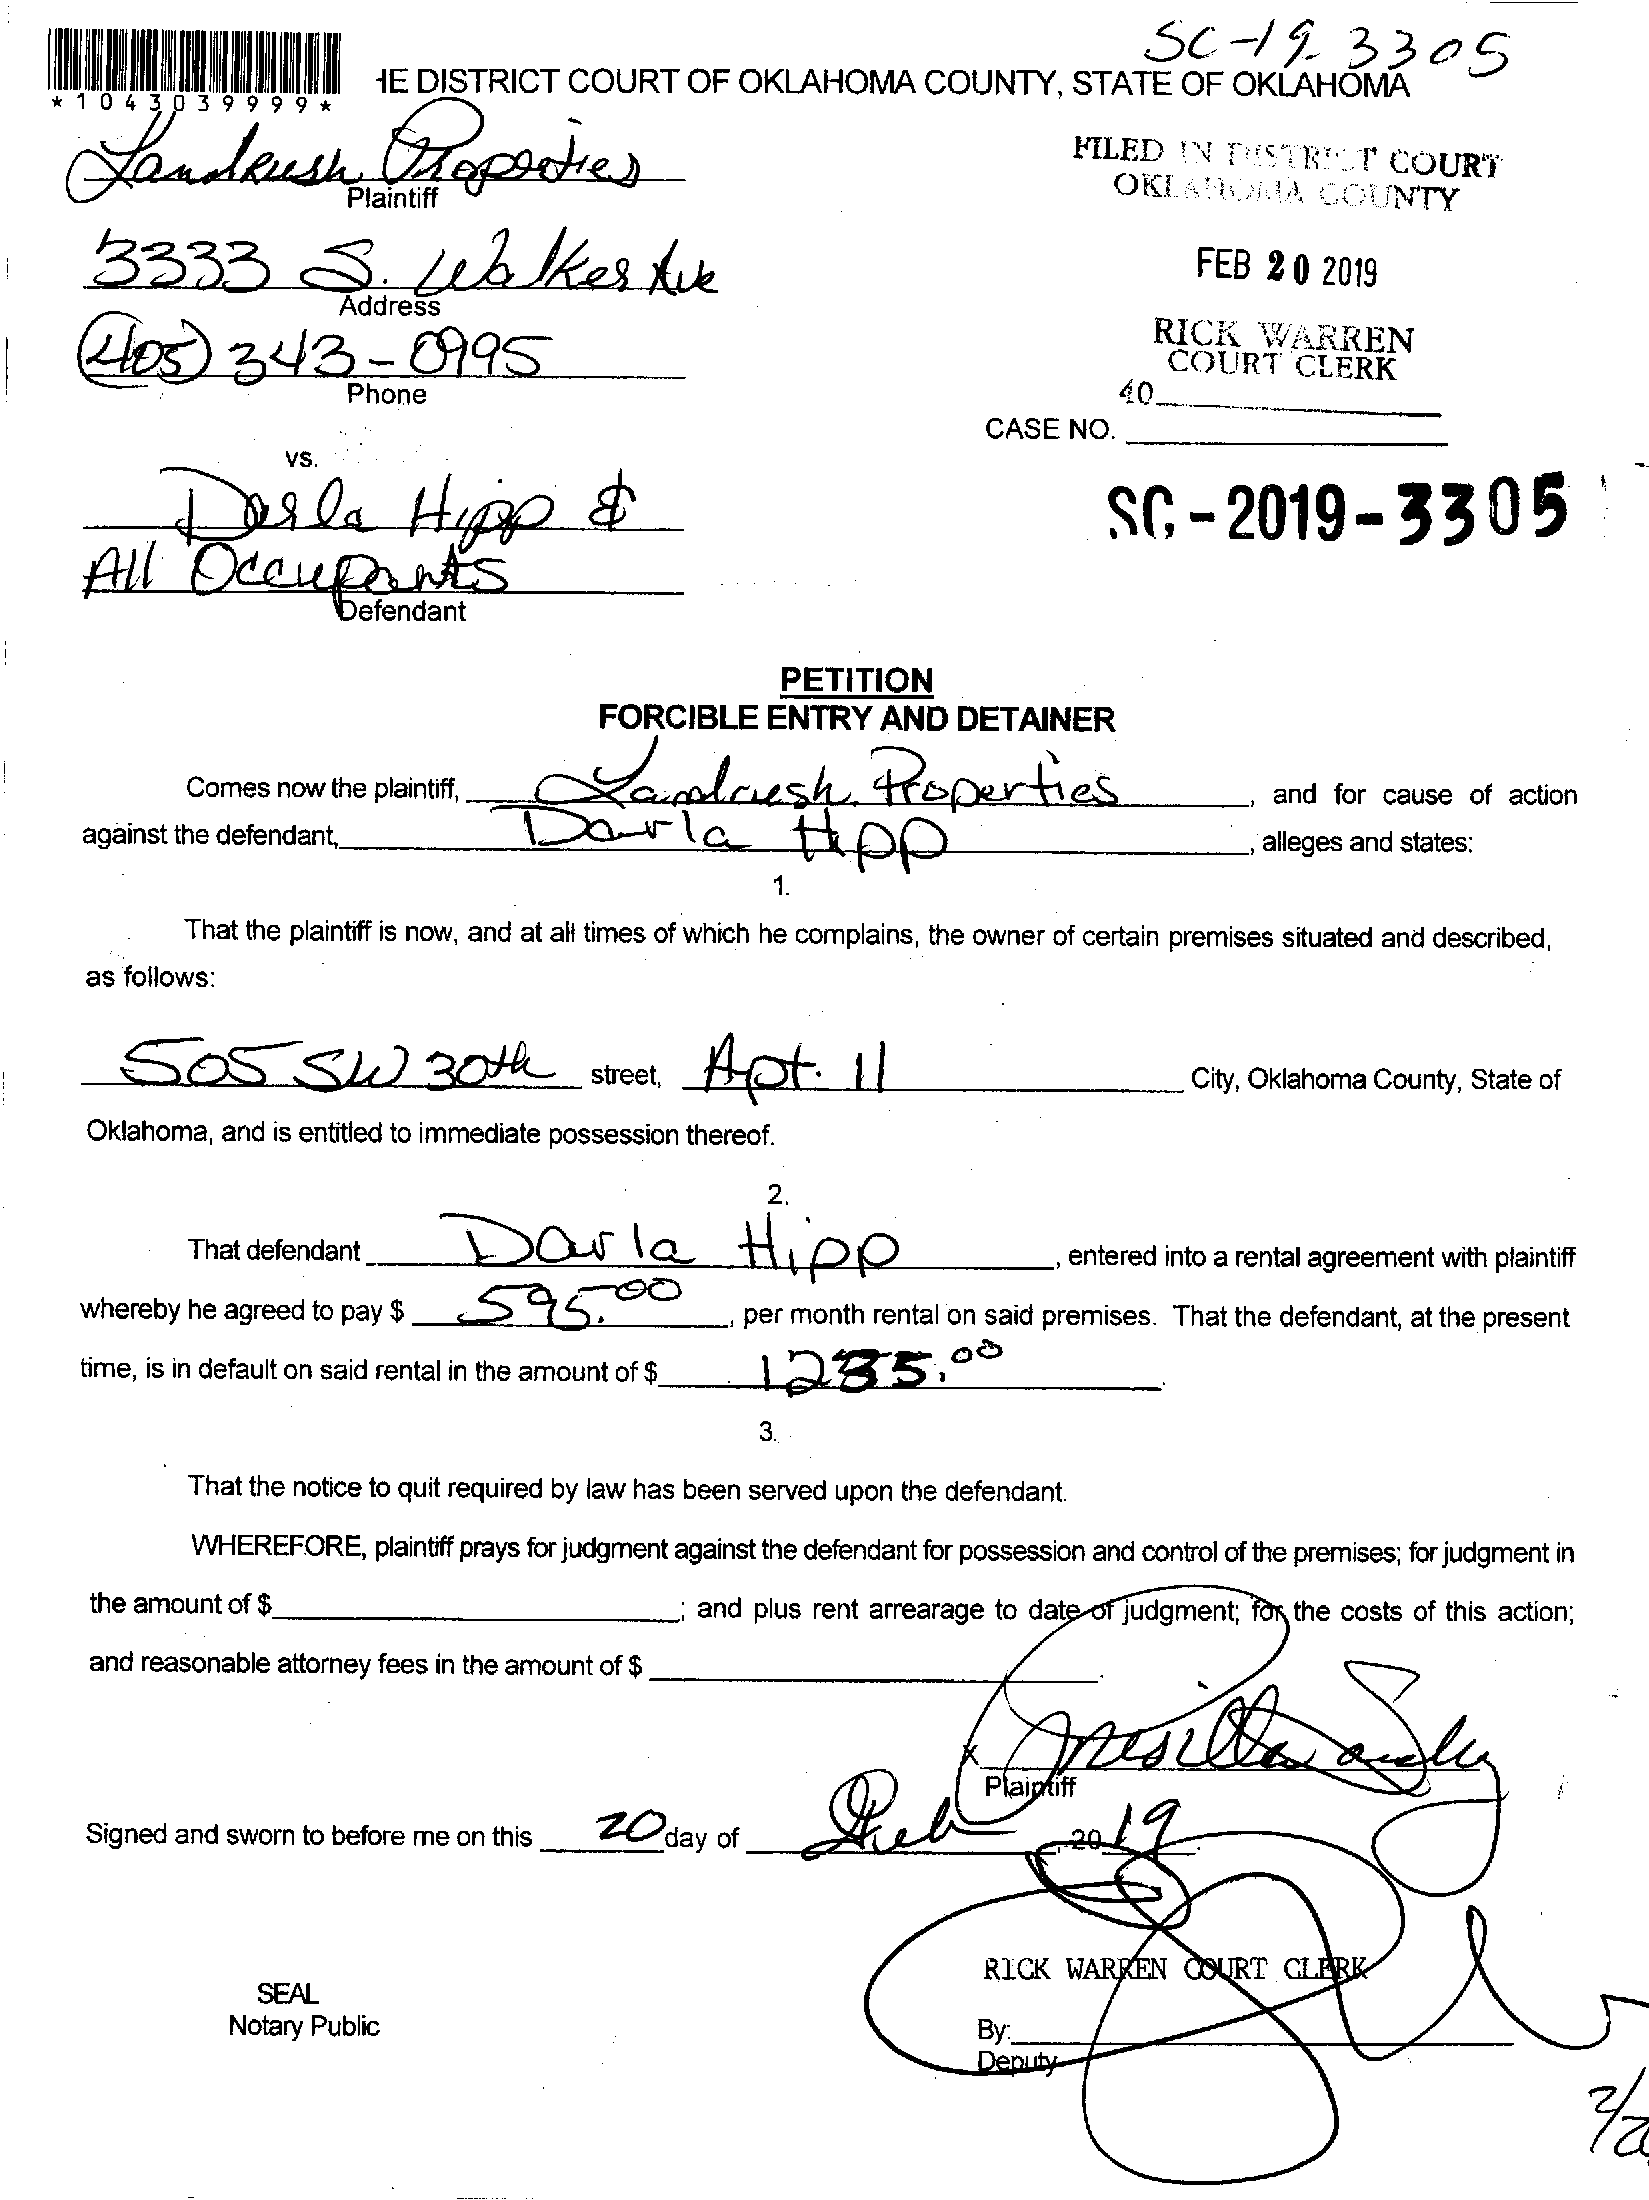 SC-19-3305
*1043039999*
HE DISTRICT COURT OF OKLAHOMA COUNTY, STATE OF OKLAHOMA
Landrush Properties
Plaintiff
FILED IN DISTRICT COURT
OKLAHOMA COUNTY
3333 S. Walker Ave
Address
FEB 20 2019
(405) 343-0995
Phone
RICK WARREN
COURT CLERK
40
CASE NO.
vs.
SC-2019-3305
Darla Hipp &
All Occupants
Defendant
PETITION
FORCIBLE ENTRY AND DETAINER
Comes now the plaintiff, Landrush Properties, and for cause of action
against the defendant, Darla Hipp, alleges and states:
1.
That the plaintiff is now, and at all times of which he complains, the owner of certain premises situated and described,
as follows:
505 SW 30th street, Apt. 11 City, Oklahoma County, State of
Oklahoma, and is entitled to immediate possession thereof.
2.
That defendant Darla Hipp, entered into a rental agreement with plaintiff
whereby he agreed to pay $ 595.00, per month rental on said premises. That the defendant, at the present
time, is in default on said rental in the amount of $ .00
3.
That the notice to quit required by law has been served upon the defendant.
WHEREFORE, plaintiff prays for judgment against the defendant for possession and control of the premises; for judgment in
the amount of $ ; and plus rent arrearage to date of judgment; for the costs of this action;
and reasonable attorney fees in the amount of $ .
x
Plaintiff
Signed and sworn to before me on this 20 day of Feb, 2019
RICK WARREN COURT CLERK
SEAL
Notary Public
By:
Deputy